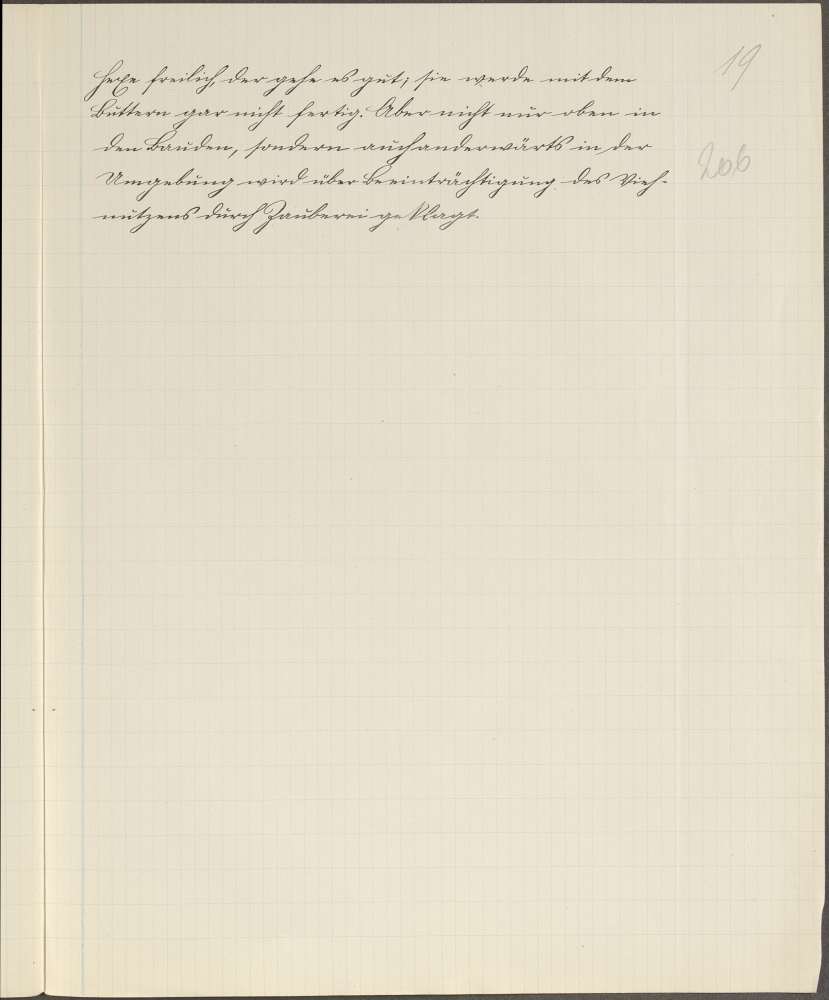 19
Hexe freilich, der gehe es gut; sie werde mit dem
Buttern gar nicht fertig. Aber nicht nur oben in
den Bauden, sondern auch anderwärts in der
206
Umgebung wird über Beeinträchtigung des Vieh-
nutzens durch Zauberei geklagt.